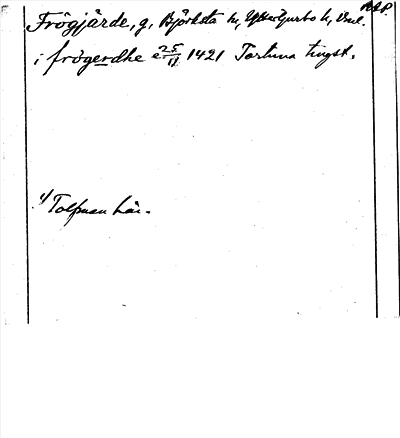 RAP.
Frögjärde, g, Björksta h, Yttertjurbo h, Vml.
i frögerdhe e 25/11 1421 Tortuna tingst.
1/ Tolfman här.